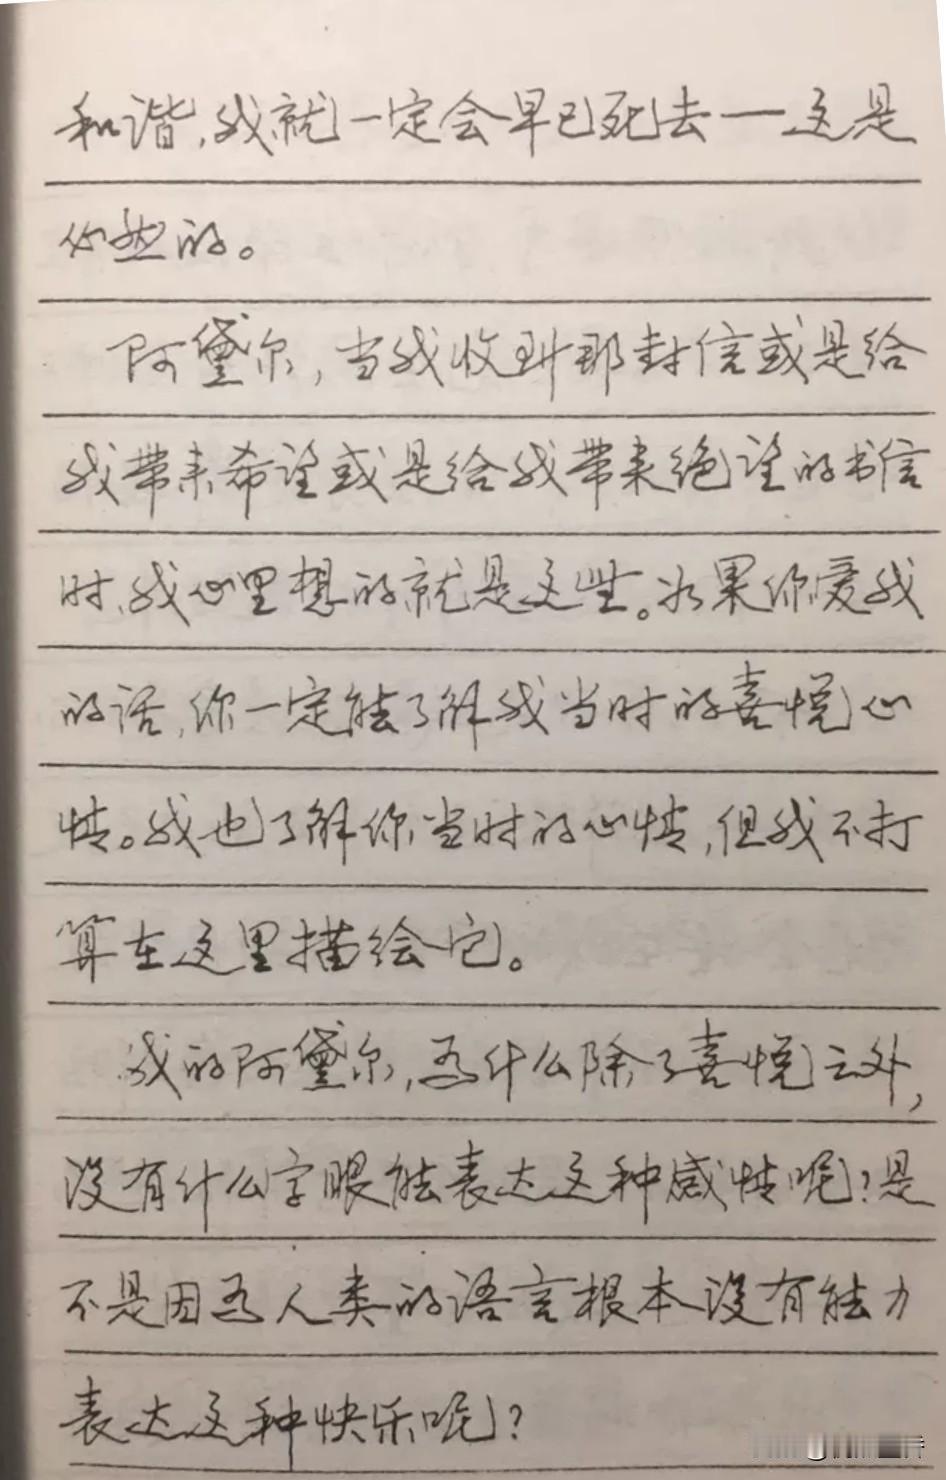 和谐，我就一定会早已死去一这是
必然的。
阿黛尔，当我收到那封信或是给
我带来希望或是给我带来绝望的书信
时，我心里想的就是这些。如果你爱我
的话，你一定能了解我当时的喜悦心
情。我也了解你当时的心情，但我不打
算在这里描绘它。
我的阿黛尔，为什么除了喜悦云外，
没有什么字眼能表达这种感情呢？是
不是因为人类的语言根本没有能力
表达这种快乐呢？